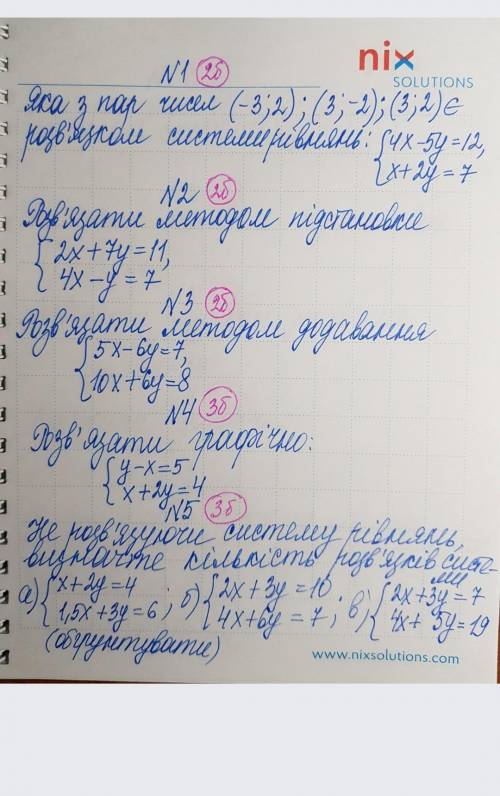 nix
SOLUTIONS
N1 2б
Яка з пар чисел (-3;2); (3;-2); (3;2) є
розв'язком системи рівнянь: { 4x-5y=12,
x+2y=7
N2 2б
Розв'язати методом підстановки
{ 2x+7y=11,
4x-y=7
N3 2б
Розв'язати методом додавання
{ 5x-6y=7,
10x+6y=8
N4 3б
Розв'язати графічно:
{ y-x=5
x+2y=4
N5 3б
Не розв'язуючи систему рівнянь,
визначте кількість розв'язків систе-
ми
а) { x+2y=4 1,5x+3y=6 ; б) { 2x+3y=10 4x+6y=7 ; в) { 2x+3y=7 4x+5y=19
(обґрунтувати)
www.nixsolutions.com